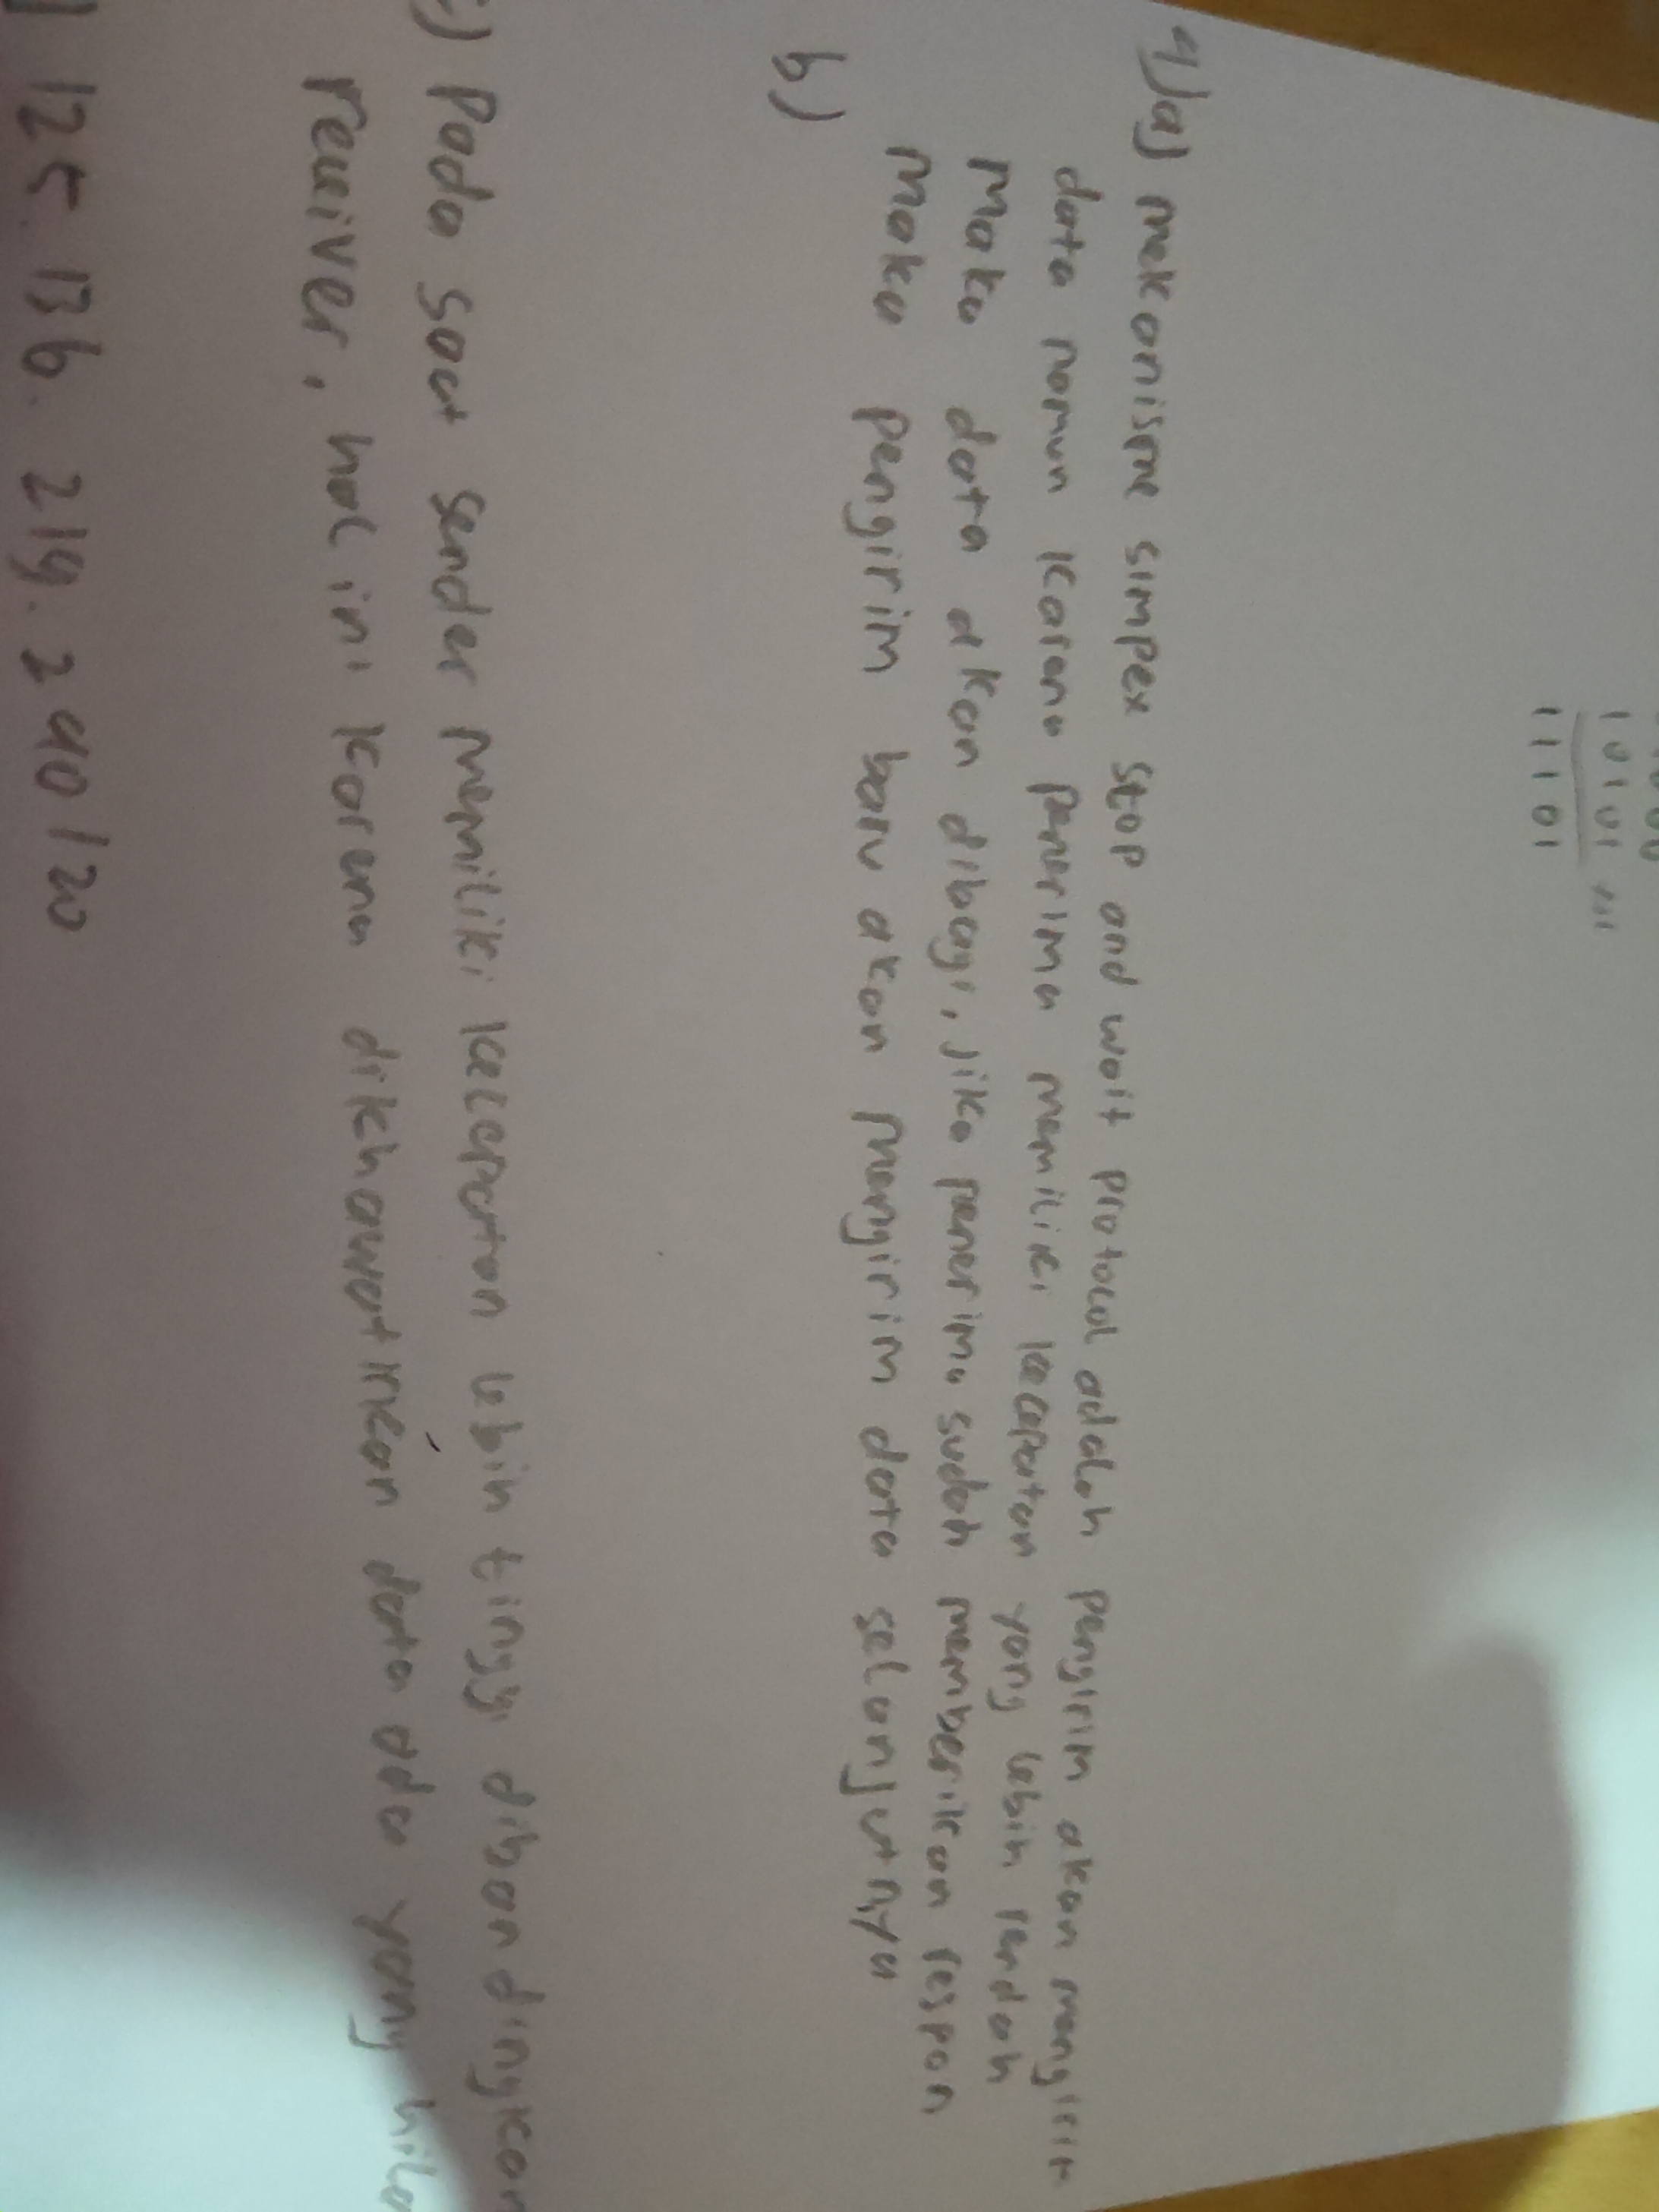 10101
11101
4) a) mekanisme simpex stop and wait protocol adalah pengirim akan mengirim
data namun karena penerima memiliki kecepatan yang lebih rendah
maka data akan dibagi, jika penerima sudah memberikan respon
maka pengirim baru akan mengirim data selanjutnya
b)
c) Pada saat sender memiliki kecepatan lebih tinggi dibandingkan
receiver, hal ini karena dikhawatirkan data ada yang hila
125.136.219.240/20